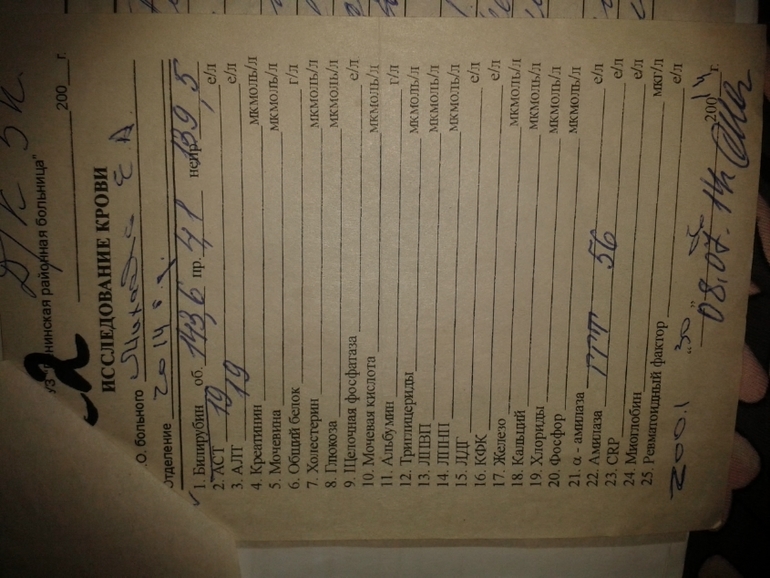 нинская районная больница"
200 г.
ИССЛЕДОВАНИЕ КРОВИ
.О. больного
Отделение 2014 г.
1. Билирубин об. 143,6 пр. 4,1 непр. 139,5
2. АСТ 19 е/л
3. АЛТ 19 е/л
4. Креатинин мкмоль/л
5. Мочевина мкмоль/л
6. Общий белок г/л
7. Холестерин мкмоль/л
8. Глюкоза мкмоль/л
9. Щелочная фосфатаза е/л
10. Мочевая кислота мкмоль/л
11. Альбумин г/л
12. Триглицериды мкмоль/л
13. ЛПВП мкмоль/л
14. ЛПНП мкмоль/л
15. ЛДГ мкмоль/л
16. КФК е/л
17. Железо е/л
18. Кальций мкмоль/л
19. Хлориды мкмоль/л
20. Фосфор мкмоль/л
21. α - амилаза мкмоль/л
22. Амилаза е/л
23. CRP ГГТ 56 е/л
24. Миоглобин е/л
25. Ревматоидный фактор мкг/л
е/л
200 14 г.
08.07.14